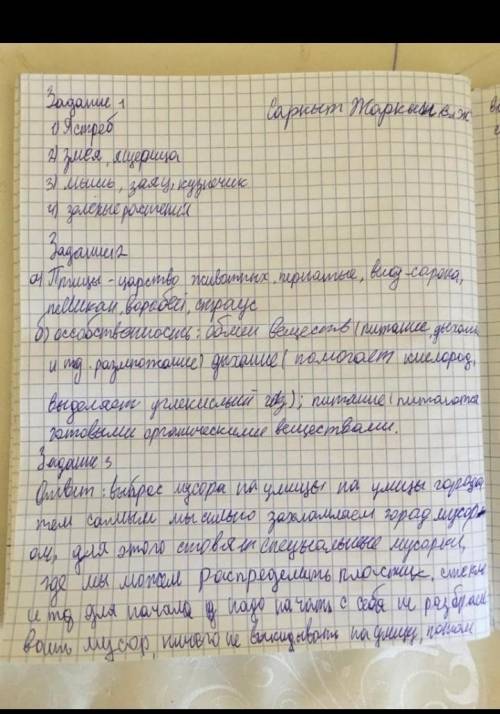 Задание 1
Саркыт Жаркын
1) Ястреб
2) змея, ящерица
3) мышь, заяц, кузнечик
4) зеленые растения
Задание 2
а) Птицы - царство животных, пернатые, вид - сорока,
пеликан, воробей, страус
б) : обмен веществ (питание, дыхание
и тд. размножание) дыхание (помогает кислород,
выделяет углекислый газ); питание (питаются
готовыми органическими веществами.
Задание 3
Ответ: выброс мусора на улицы на улицы города
тем самым мы сильно захламляем город мусор-
ом, для этого ставят специальные мусорки,
где мы можем распределить пластик, стекло
и тд для начала надо начать с себя не разбрасы
вать мусор, ничего не выкидывать на улицу, потом